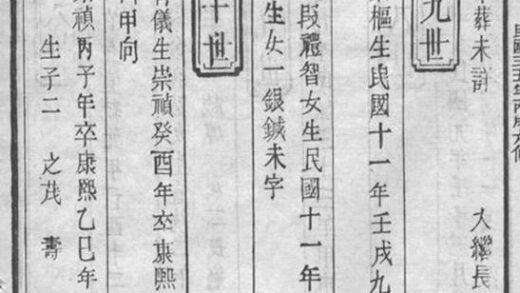 民國三五年丙戌九修
葬未詳 入繼長
九世
樞生民國十一年壬戌九
段禮智女生民國十一年
生女一 銀鍼未字
十世
儀生崇禎癸酉年卒康熙
甲向
禎丙子年卒康熙乙巳年
生子二 之茂 壽